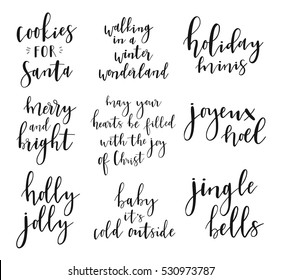 cookies
FOR
Santa
walking
in a
winter
wonderland
holiday
minis
merry
and
bright
may your
hearts be filled
with the joy
of Christ
joyeux
noel
holly
jolly
baby
it's
cold outside
jingle
bells
shutterstock.com · 530973787